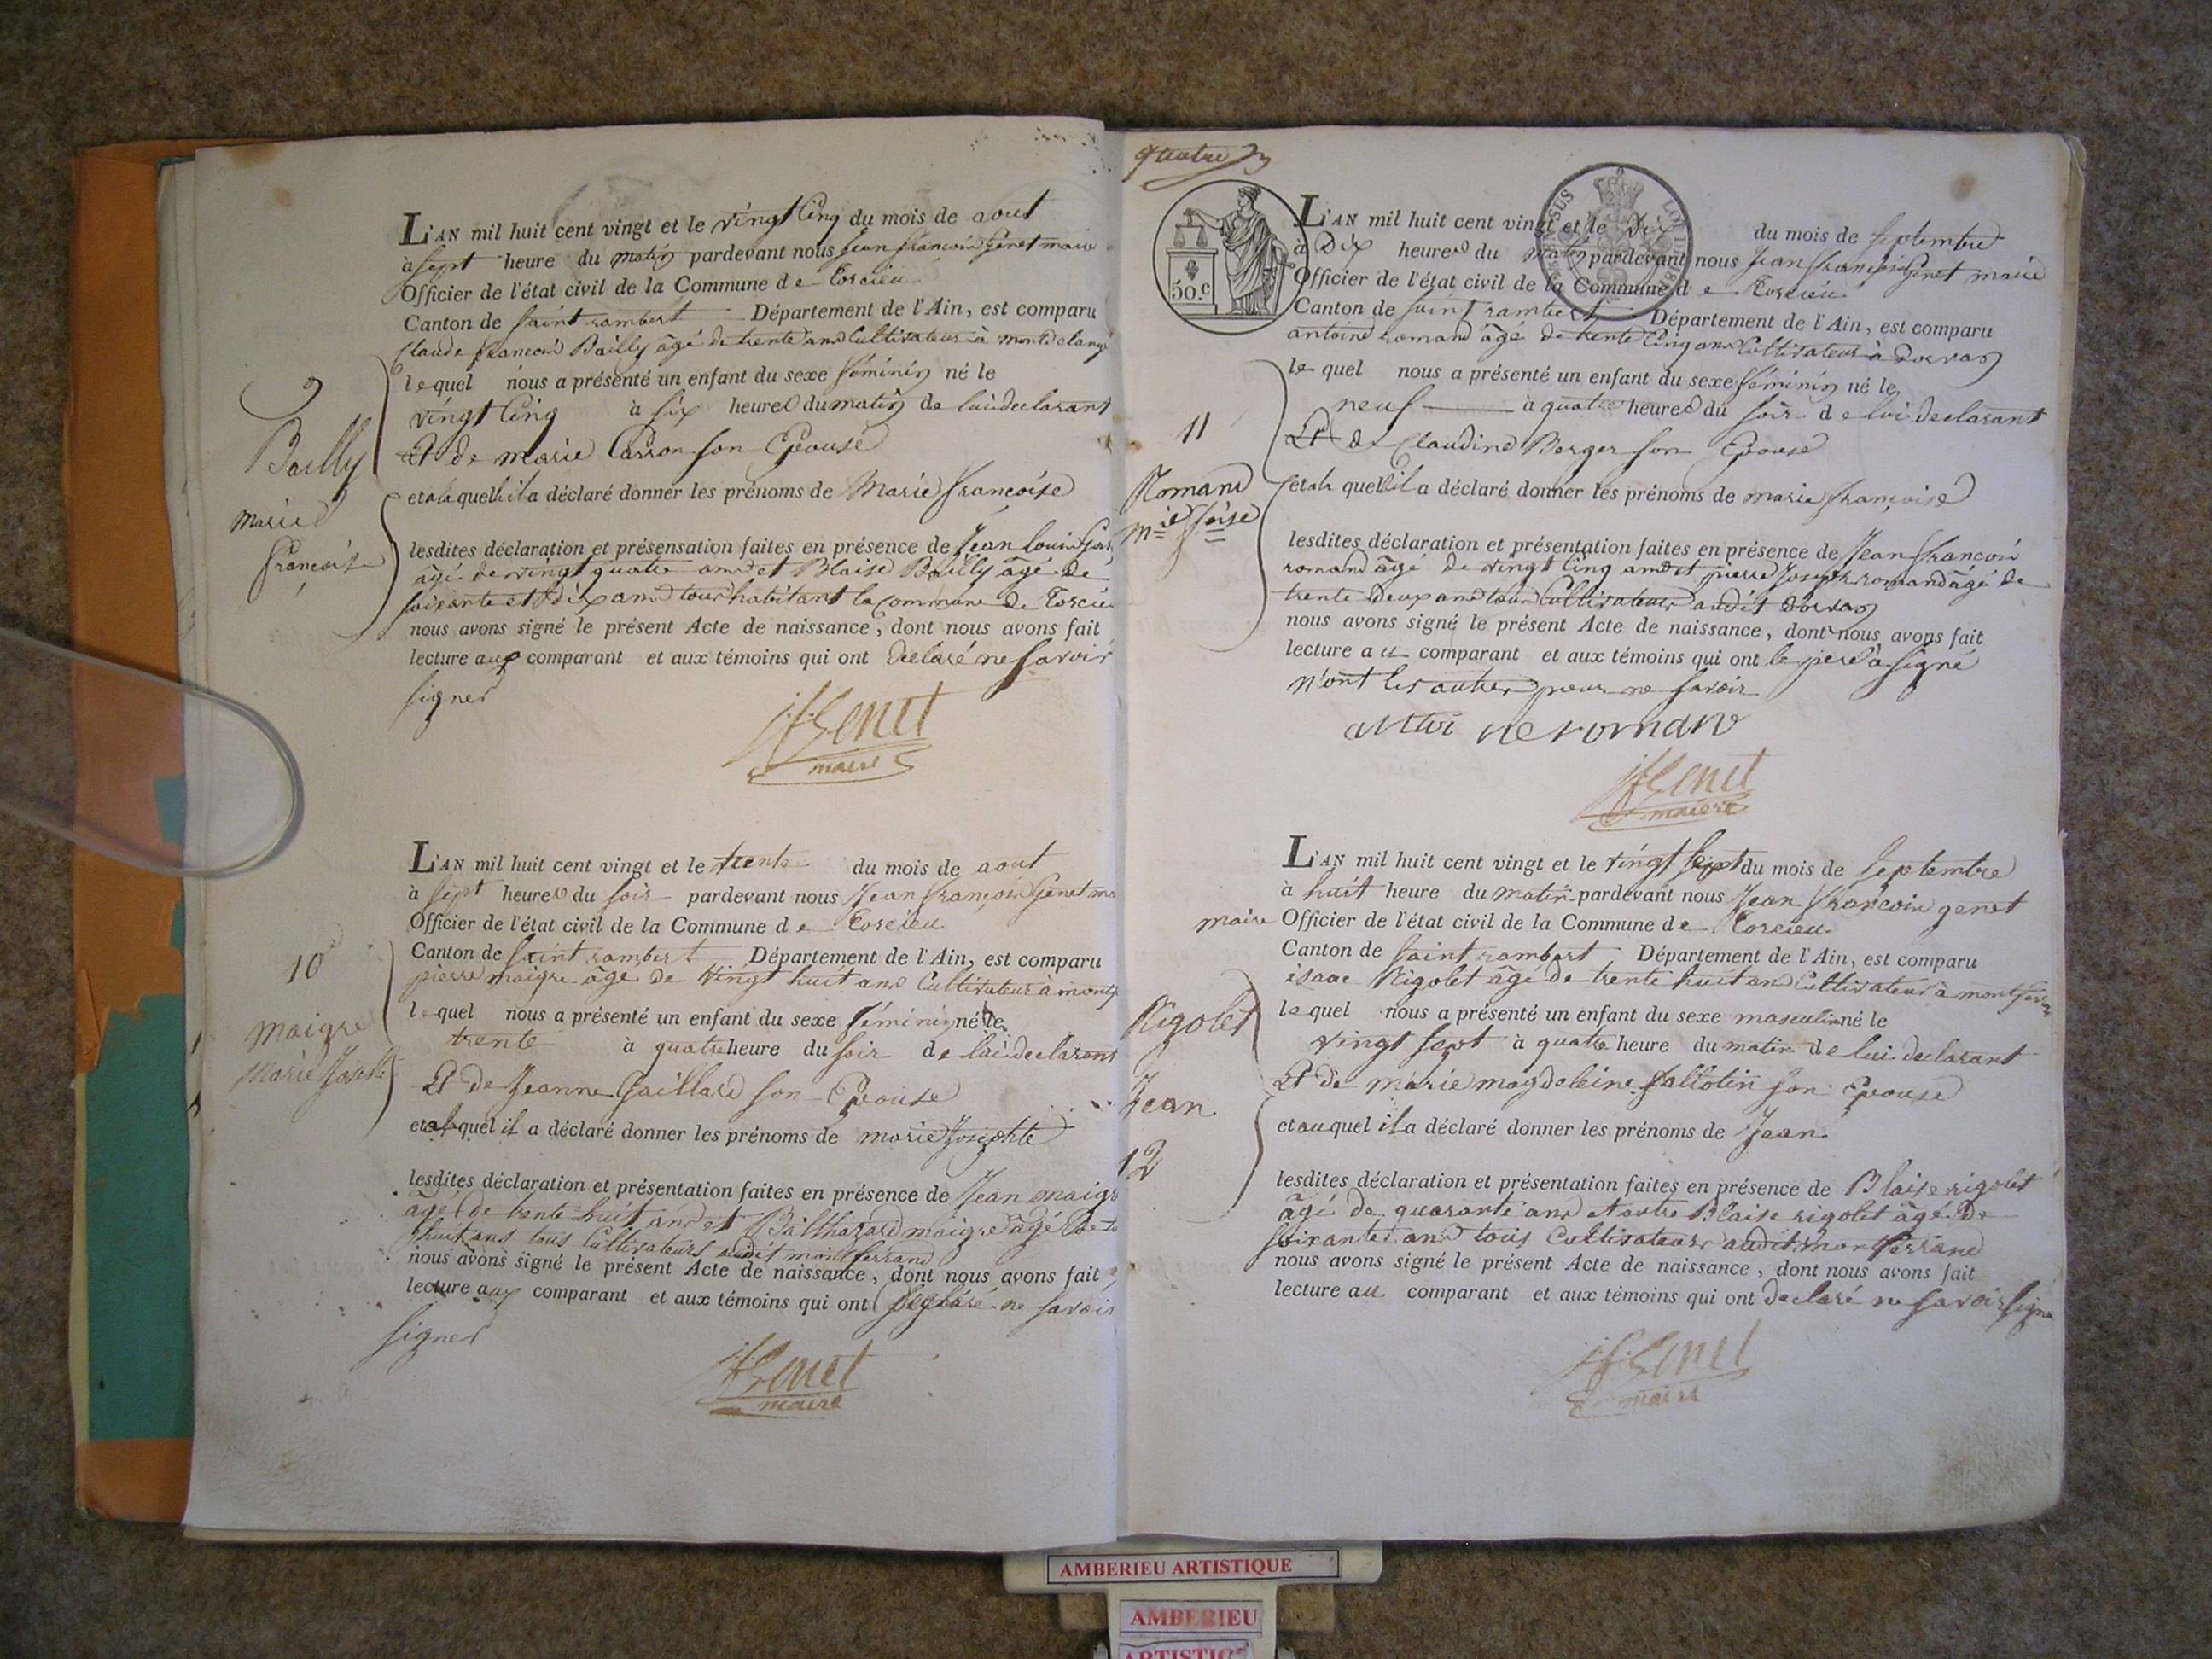 L'AN mil huit cent vingt et le vingt Cinq du mois de aout
à sept heure du matin pardevant nous Jean françois Genet maire
Officier de l'état civil de la Commune de Torcieu
Canton de saint rambert Département de l'Ain, est comparu
Claude françois Bailly âgé de trente ans Cultivateur à
lequel nous a présenté un enfant du sexe féminin né le
vingt Cinq à six heures du matin de lui declarant
Et de marie Carron son Epouse
9
Bailly
marie
françoise
et a la quelle il a déclaré donner les prénoms de Marie françoise
lesdites déclaration et présensation faites en présence de Jean louis
âgé de vingt quatre ans et Blaise Bailly âgé de
soixante et dix ans tous habitant la commune de Torcieu
nous avons signé le présent Acte de naissance, dont nous avons fait
lecture aux comparant et aux témoins qui ont declaré ne savoir
signer
jf Genet
maire
L'AN mil huit cent vingt et le trente du mois de aout
à sept heures du soir pardevant nous Jean françois Genet ma
Officier de l'état civil de la Commune de Torcieu
Canton de saint rambert Département de l'Ain, est comparu
pierre maigre âgé de vingt huit ans Cultivateur à montf
10
maigre
Marie Josette
lequel nous a présenté un enfant du sexe féminin né le
trente à quatre heure du soir de lui declarant
Et de Jeanne Gaillard son Epouse
et a la quel il a déclaré donner les prénoms de marie Josephte
lesdites déclaration et présentation faites en présence de Jean maigr
âgé de trente huit ans et Balthazard maigre âgé de
huit ans tous Cultivateurs audit montferrand
nous avons signé le présent Acte de naissance, dont nous avons fait
lecture aux comparant et aux témoins qui ont declaré ne savoir
signer
jf Genet
maire
quatre
50.c
L'AN mil huit cent vingt et le Dix du mois de septembre
à Dix heures du matin pardevant nous Jean françois Genet maire
Officier de l'état civil de la Commune de Torcieu
Canton de saint rambert Département de l'Ain, est comparu
antoine romand âgé de trente Cinq ans Cultivateur à Dorvan
lequel nous a présenté un enfant du sexe féminin né le
neuf à quatre heures du soir de lui declarant
Et de Claudine Berger son Epouse
11
Romand
Mie foise
et a la quelle il a déclaré donner les prénoms de marie françoise
lesdites déclaration et présentation faites en présence de Jean françois
romand âgé de vingt Cinq ans et pierre Joseph romand âgé de
trente deux ans tous Cultivateurs audit Dorvan
nous avons signé le présent Acte de naissance, dont nous avons fait
lecture au comparant et aux témoins qui ont le pere a signé
n'ont les autres pour ne savoir
antoi ne roman
jf Genet
maire
L'AN mil huit cent vingt et le vingt sept du mois de septembre
à huit heure du matin pardevant nous Jean françois genet
maire Officier de l'état civil de la Commune de Torcieu
Canton de saint rambert Département de l'Ain, est comparu
isaac Rigolet âgé de trente huit ans Cultivateur à montferran
lequel nous a présenté un enfant du sexe masculin né le
vingt sept à quatre heure du matin de lui declarant
Et de marie magdeleine Sallotin son Epouse
Rigolet
Jean
12
et au quel il a déclaré donner les prénoms de Jean
lesdites déclaration et présentation faites en présence de Blaise rigolet
âgé de quarante ans et autre Blaise rigolet âgé de
soixante ans tous Cultivateurs audit montferrand
nous avons signé le présent Acte de naissance, dont nous avons fait
lecture au comparant et aux témoins qui ont declaré ne savoir signe
jf Genet
maire
AMBERIEU ARTISTIQUE
AMBERIEU